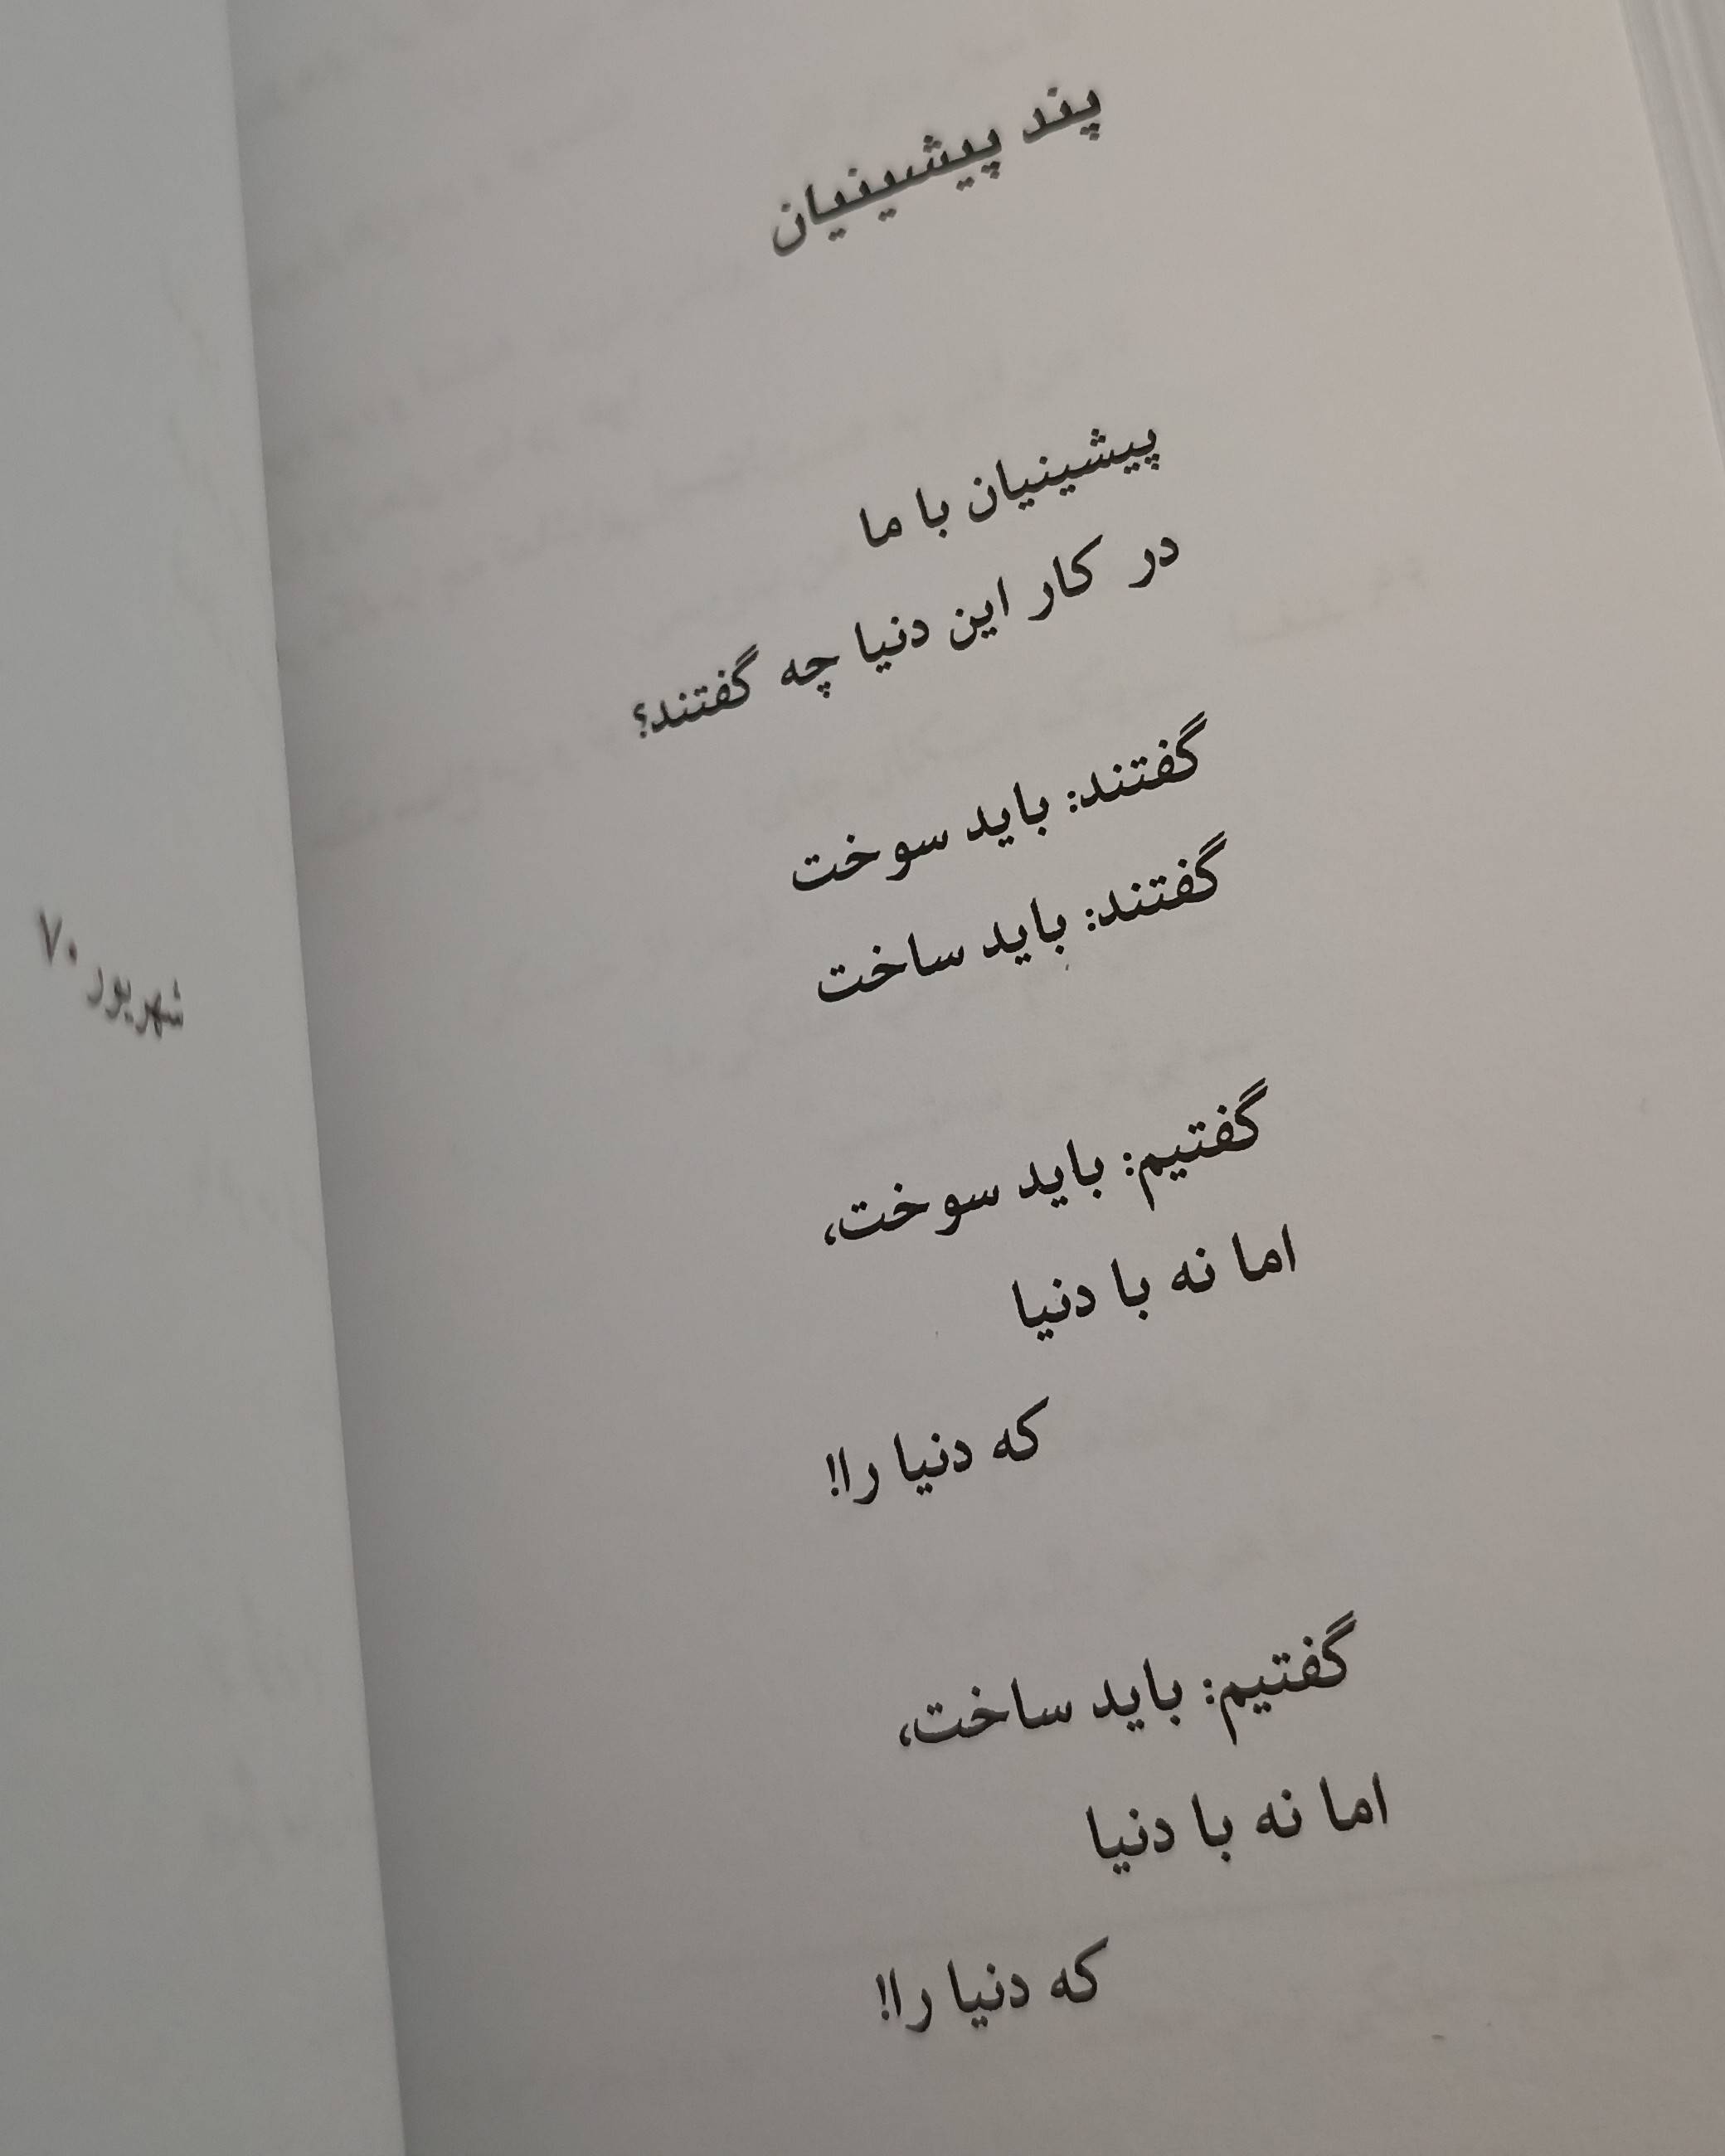 پند پیشینیان
پیشینیان با ما
در کار این دنیا چه گفتند؟
گفتند: باید سوخت
گفتند: باید ساخت
گفتیم: باید سوخت،
اما نه با دنیا
که دنیا را!
گفتیم: باید ساخت،
اما نه با دنیا
که دنیا را!
شهریور ۷۰